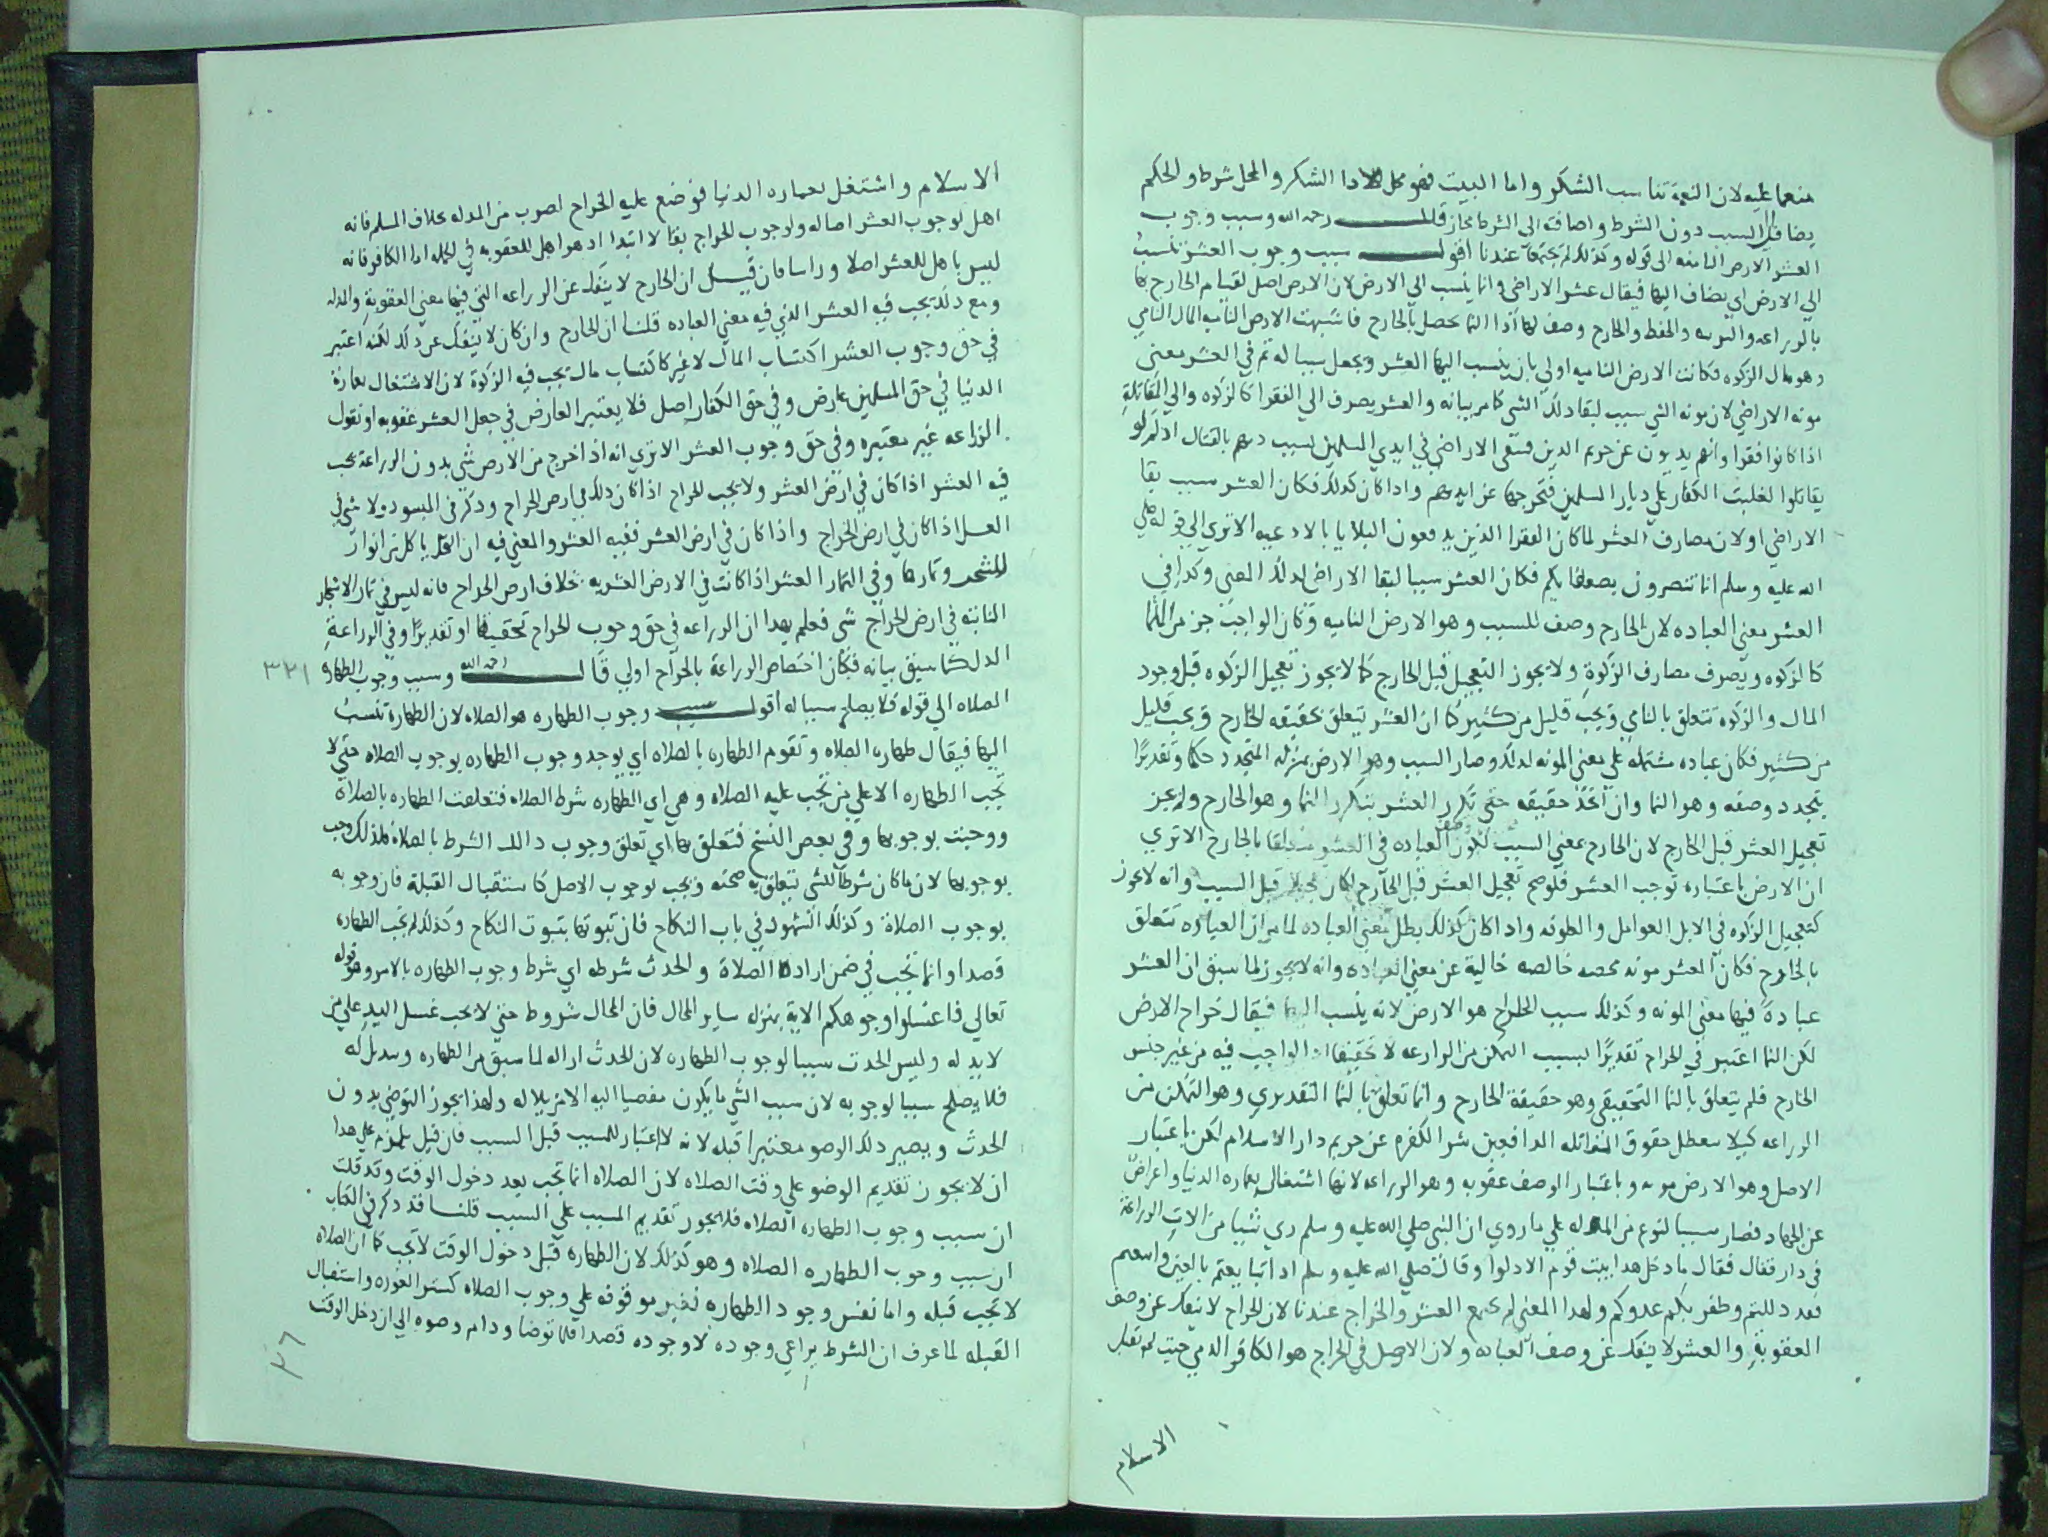 منعما عليه لان النعمة تناسب الشكر واما البيت فهو محل لادا الشكر والمحل شرط والحكم
يضاف الي السبب دون الشرط واضافته الي الشرط مجاز قال رحمه الله وسبب وجوب
العشر الارض النامية الي قوله وكذلك لم يجتمعا عندنا اقول سبب وجوب العشر تنسب
الي الارض اي يضاف اليها فيقال عشر الاراضي وانما ينسب الي الارض لان الارض اصل لقيام الخارج بها
بالزراعه والتربيه والحفظ والخارج وصف لها اذا النما يحصل بالخارج فاشبهت الارض الناميه المال النامي
وهو مال الزكوه فكانت الارض الناميه اولي بان ينسب اليها العشر ويجعل سببا له ثم في العشر معني
مونه الاراضي لان مونه الشي سبب لبقا ذلك الشي كما مر بيانه والعشر يصرف الي الفقرا كالزكوه والي المقاتلة
اذا كانوا فقرا وانهم يذبون عن حريم الدين فتبقي الاراضي في ايدي المسلمين بسبب ذبهم بالقتال اذ لو لم
يقاتلوا لغلبت الكفار علي ديار المسلمين فتخرجها عن ايديهم واذا كان كذلك فكان العشر سبب بقا
الاراضي او لان مصارف العشر لما كان الفقرا الذين يدفعون البلايا بالادعيه الا تري الي قوله صلي
الله عليه وسلم انما تنصرون بضعفايكم فكان العشر سببا لبقا الاراضي لذلك المعني وكذا في
العشر معني العباده لان الخارج وصف للسبب وهو الارض الناميه وكان الواجب جز من النما
كالزكوه ويصرف مصارف الزكوة ولا يجوز التعجيل قبل الخارج كما لا يجوز تعجيل الزكوه قبل وجود
المال والزكوه تتعلق بالنامي ويجب قليل من كثير كما ان العشر يتعلق بحقيقه الخارج ويجب قليل
من كثير فكان عباده مشتمله علي معني المونه لذلك وصار السبب وهو الارض بمنزله المتجدد حكما وتقديرا
بتجدد وصفه وهو النما وان اتحد حقيقه حتي تكرر العشر بتكرر النما وهو الخارج ولم يجز
تعجيل العشر قبل الخارج لان الخارج بمعني السبب لكون وصف العباده في العشر متعلقا بالخارج الا تري
ان الارض باعتباره توجب العشر فلو صح تعجيل العشر قبل الخارج لكان تعجيلا قبل السبب وانه لا يجوز
كتعجيل الزكوه في الابل العوامل والعلوفه واذا كان كذلك بطل معني العباده لما مر ان العباده تتعلق
بالخارج فكان العشر مونه محضه خالصه خالية عن معني العباده وانه لا يجوز لما سبق ان العشر
عبادة فيها معني المونه وكذلك سبب الخراج هو الارض لانه ينسب اليها فيقال خراج الارض
لكن النما اعتبر في الخراج تقديرا بسبب التمكن من الزراعه لا تحقيقا اذ الواجب فيه من غير جنس
الخارج فلم يتعلق بالنما التحقيقي وهو حقيقة الخارج وانما تعلق بالنما التقديري وهو التمكن من
الزراعه كيلا يتعطل حقوق المقاتله الدافعين شر الكفره عن حريم دار الاسلام لكن باعتبار
الاصل وهو الارض مونه وباعتبار الوصف عقوبه وهو الزراعه لانها اشتغال بعماره الدنيا واعراض
عن الجهاد فصار سببا لنوع من المذله علي ما روي ان النبي صلي الله عليه وسلم راي شيا من الات الزراعة
في دار فقال فقال ما دخل هذا بيت قوم الا ذلوا وقال صلي الله عليه وسلم اذا تبايعتم بالعين واتبعتم
فقد ذللتم وظفر بكم عدوكم ولهذا المعني لم يجتمع العشر والخراج عندنا لان الخراج لا ينفك عن وصف
العقوبة والعشر لا ينفك عن وصف العباده ولان الاصل في الخراج هو الكافر الذمي حيث لم تقبل
الاسلام
الاسلام واشتغل بعماره الدنيا فوضع عليه الخراج لضرب من المذله بخلاف المسلم فانه
اهل لوجوب العشر اصاله ولوجوب الخراج بقا لا ابتدا اذ هو اهل للعقوبه في الجمله اما الكافر فانه
ليس باهل للعشر اصلا وراسا فان قيل ان الخارج لا ينفك عن الزراعه التي فيها معني العقوبة والمذله
ومع ذلك يجب فيه العشر الذي فيه معني العباده قلنا ان الخارج وان كان لا ينفك عن ذلك لكنه اعتبر
في حق وجوب العشر اكتساب المال لا غير كاكتساب مال تجب فيه الزكوة لان الاشتغال بعمارة
الدنيا في حق المسلمين عارض وفي حق الكفار اصل فلا يعتبر العارض في جعل العشر عقوبه او نقول
الزراعه غير معتبره وفي حق وجوب العشر الا تري انه اذا خرج من الارض شي بدون الزراعة يجب
فيه العشر اذا كان في ارض العشر ولا يجب الخراج اذا كان ذلك في ارض الخراج وذكر في المبسوط ولا شي في
العسل اذا كان في ارض الخراج واذا كان في ارض العشر ففيه العشر والمعني فيه ان النحل ياكل من انوار
الشجر وثمارها وفي الثمار العشر اذا كانت في الارض العشريه بخلاف ارض الخراج فانه ليس في ثمار الاشجار
النابته في ارض الخراج شي فعلم بهذا ان الزراعه في حق وجوب الخراج تحقيقا او تقديرا وفي الزراعة
الذل كما سبق بيانه فكان اختصاص الزراعة بالخراج اولي قال رحمه الله وسبب وجوب الطهارة
٣٢١
الصلاه الي قوله فلا يصلح سببا له اقول سبب وجوب الطهاره هو الصلاه لان الطهارة تنسب
اليها فيقال طهاره الصلاه وتقوم الطهاره بالصلاه اي يوجد وجوب الطهاره بوجوب الصلاه حتي لا
تجب الطهاره الا علي من تجب عليه الصلاه وهي اي الطهاره شرط الصلاه فتعلقت الطهاره بالصلاة
ووجبت بوجوبها وفي بعض النسخ فتعلق بها اي تعلق وجوب ذالك الشرط بالصلاة فلذلك وجب
بوجوبها لان ما كان شرطا لشي يتعلق به صحته ويجب لوجوب الاصل كاستقبال القبلة فان وجوبه
بوجوب الصلاة وكذلك الشهود في باب النكاح فان ثبوتها بثبوت النكاح وكذلك لم تجب الطهاره
قصدا وانما تجب في ضمن ارادة الصلاة والحدث شرطه اي شرط وجوب الطهاره بالامر وهو قوله
تعالي فاغسلوا وجوهكم الاية بمنزله ساير المحال فان المحال شروط حتي لا يجب غسل اليد علي من
لا يد له وليس الحدث سببا لوجوب الطهاره لان الحدث ازاله لما سبق من الطهاره وتبديل له
فلا يصلح سببا لوجوبه لان سبب الشي ما يكون مفضيا اليه لا مزيلا له ولهذا يجوز التوضي بدون
الحدث ويصير ذلك الوضو معتبرا قبله لانه لا اعتبار للمسبب قبل السبب فان قيل يلزم علي هذا
ان لا يجوز تقديم الوضو علي وقت الصلاه لان الصلاه انما تجب بعد دخول الوقت وقد قلت
ان سبب وجوب الطهاره الصلاه فلا يجوز تقديم المسبب علي السبب قلنا قد ذكر في الكتاب
ان سبب وجوب الطهاره الصلاه وهو كذلك لان الطهارة قبل دخول الوقت لا تجب كما ان الصلاه
لا تجب قبله واما نفس وجود الطهاره فغير موقوفه علي وجوب الصلاه كستر العوره واستقبال
القبله لما عرف ان الشرط يراعي وجوده لا وجوده قصدا فلما توضا ودام وضوه الي ان دخل الوقت
٣٦